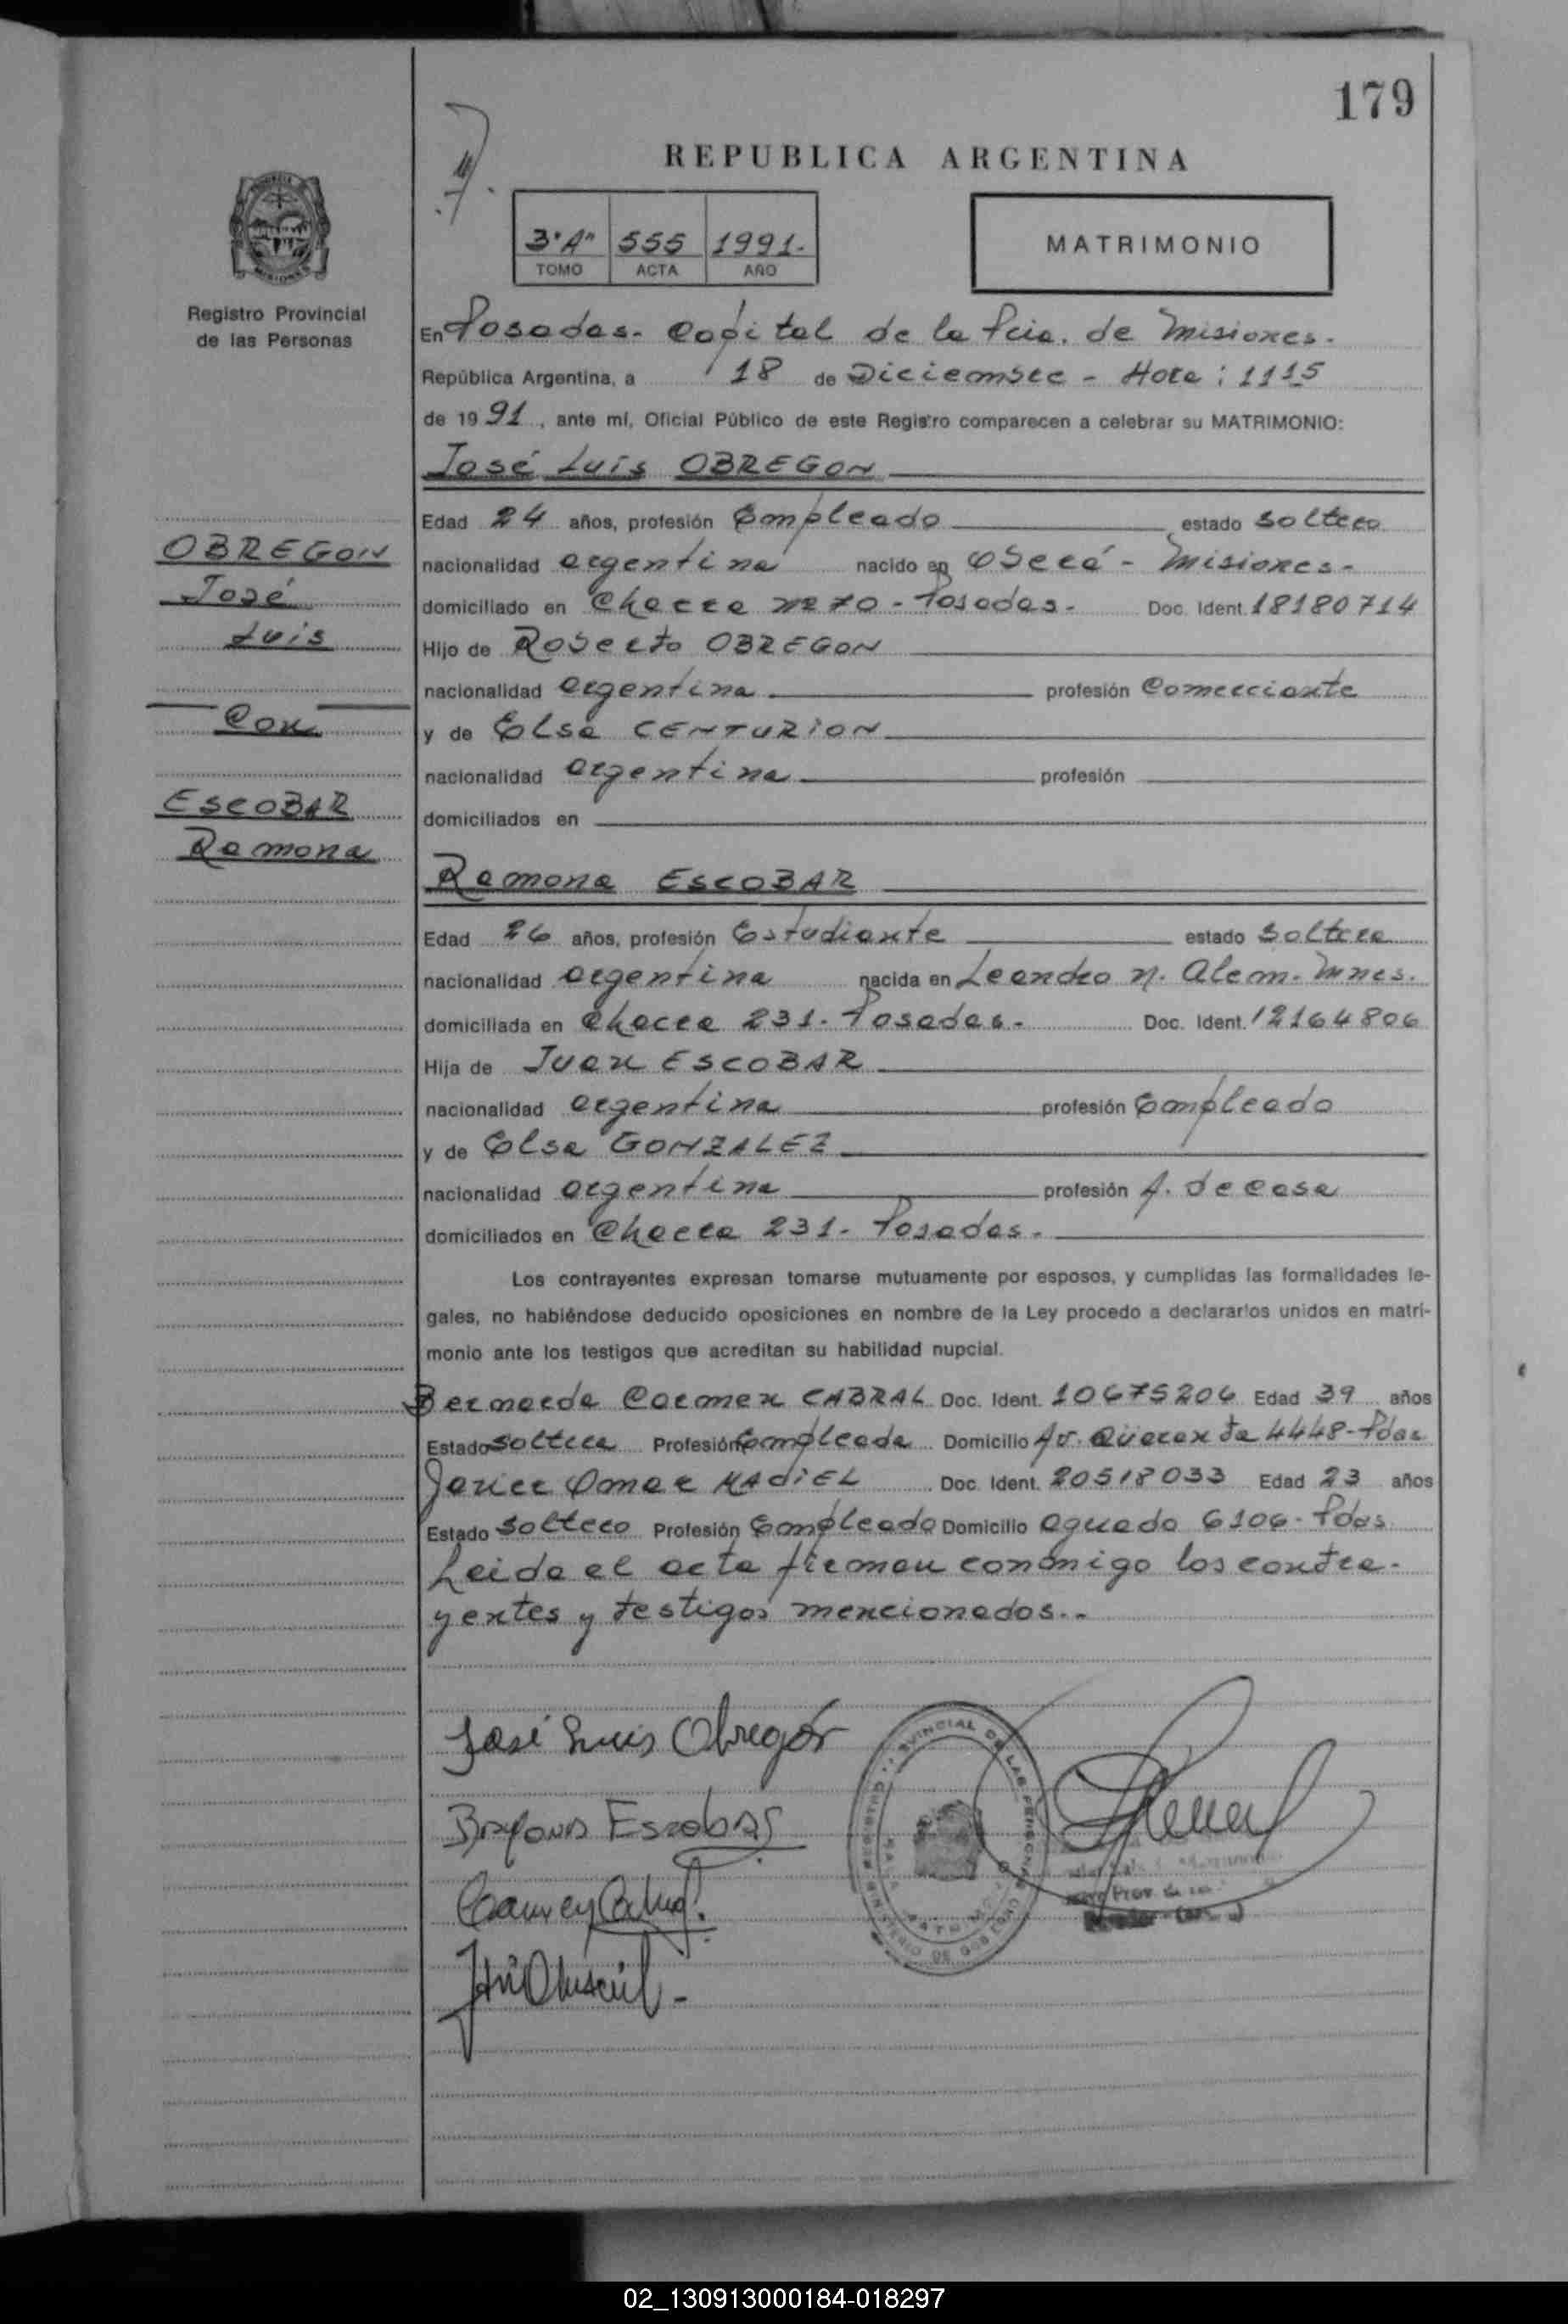 179
REPUBLICA ARGENTINA
3º "A" 555 1991.-
TOMO ACTA AÑO
MATRIMONIO
Registro Provincial
de las Personas
En Posadas.- Capital de la Pcia. de Misiones.-
República Argentina, a 18 de Diciembre - Hora: 1115
de 1991, ante mí, Oficial Público de este Registro comparecen a celebrar su MATRIMONIO:
José Luis OBREGON
Edad 24 años, profesión Empleado estado soltero
OBREGON
nacionalidad argentina nacido en Oberá - Misiones-
José
domiciliado en Chacra Nº 70 - Posadas.- Doc. Ident. 18180714
Luis
Hijo de Roberto OBREGON
nacionalidad argentina profesión Comerciante
Con
y de Elsa CENTURION
nacionalidad argentina profesión
ESCOBAR
domiciliados en
Ramona
Ramona ESCOBAR
Edad 26 años, profesión Estudiante estado soltera
nacionalidad argentina nacida en Leandro N. Alem. Mnes.
domiciliada en Chacra 231- Posadas.- Doc. Ident. 12164806
Hija de Juan ESCOBAR
nacionalidad argentina profesión Empleado
y de Elsa GONZALEZ
nacionalidad argentina profesión A. de casa
domiciliados en Chacra 231- Posadas.-
Los contrayentes expresan tomarse mutuamente por esposos, y cumplidas las formalidades le-
gales, no habiéndose deducido oposiciones en nombre de la Ley procedo a declararlos unidos en matri-
monio ante los testigos que acreditan su habilidad nupcial.
Bernarda Carmen CABRAL Doc. Ident. 10675206 Edad 39 años
Estado soltera Profesión Empleada Domicilio Av. Quaranta 4448-Pdas
Javier Omar MACIEL Doc. Ident. 20518033 Edad 23 años
Estado soltero Profesión Empleado Domicilio Aguado 6106- Pdas
Leida el acta firman conmigo los contra-
yentes y testigos mencionados.-
José Luis Obregón
Escobar
REGISTRO PROVINCIAL DE LAS PERSONAS
MINISTERIO DE GOBIERNO
02_130913000184-018297